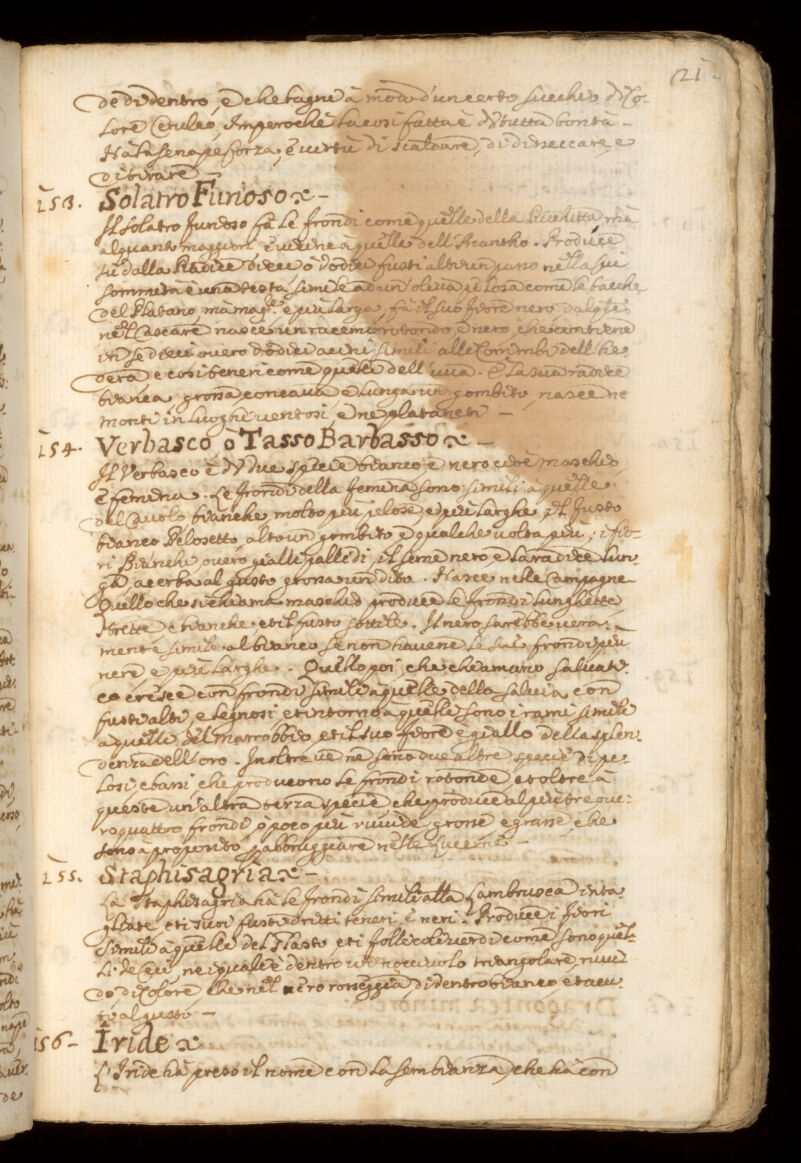 21
de di dentro, è che bagni à modo d'un certo succhio di Co-
lore Ceruleo, Imperochè la così fatta è di tutta bontà -
Hà la Senape forza, è virtù di scaldare, di diseccare, e
di tirare -
153. Solatro Furioso -
Il solatro furioso hà le frondi come quelle della Ruchitta, mà
alquanto maggiori è vicine à quelle dell'Acantho. Produce
sù dalla Radice dieci ò dodici fusti alti un passo nella cui
sommità è una testa simile ad un'oliva pelosa come le bacche
del Platano, mà mag.e e più larga, fà il suo fiore nero dal q.le
nel Cascare nasce un racemo rotondo è nero, che contiene
in se dieci overo dodici acini simili alli Corimbi dell'he-
dera e così teneri come quelli dell'uva. È la sua radice
bianca, grossa concava e lunga un gombito, nasce ne
monti in luoghi ventosi, è ne plataneti -
154. Verbasco ò Tasso Barbasso -
Il Verbasco è di due specie bianco, è nero cioè maschio,
è femina. Le frondi della femina sono simili à quelle
del Cavolo bianche molto più pelose, e più larghe, il fusto
bianco Pelosetto, alto un gombito è qualche volta più, i fio-
ri Bianchi, overo gialli pallidi, il seme nero è la radice lun-
ga, acerba al gusto grossa un dito. Nasce nelle Campagne
Quello che si chiama maschio produce le frondi lunghette
strette è bianche, et il fusto sottile. Il nero sarebbe vera-
mente simile al bianco se non havene le sue frondi più
nere è più larghe. Quello poi, che chiamano salvati-
co cresce con frondi simili à quelle della salvia, con
fusti alti, e legnosi, et intorno à quelli sono i rami simili
a quelli del marrobbio, et il suo fiore è giallo della splen-
denza dell'oro. Inoltre ve ne sono due altre specie di pe-
losi, e bassi che producono le frondi rotonde, et oltre à
queste un'altra terza specie che produce al più tre ove-
ro quattro frondi ò poco più ruvide grosse e grasse che
sono à proposito p abbruggiare nelle Lucerne -
155. Staphisagria -
La Staphisagria hà le frondi simili alla Lambrusca inta-
gliate, et i suoi fusti dritti teneri, è neri. Produce i fiori
simili à quelle del Guasto et i follicoli verdi come sono quel-
li de Ceci, ne i quale è dentro un nocciuolo triangolare, ruvi-
do di Colore, che nel nero rosseggia, di dentro bianco et acu-
to al gusto -
156 - Iride
L'Iride hà preso il nome con la sembianza, che hà con